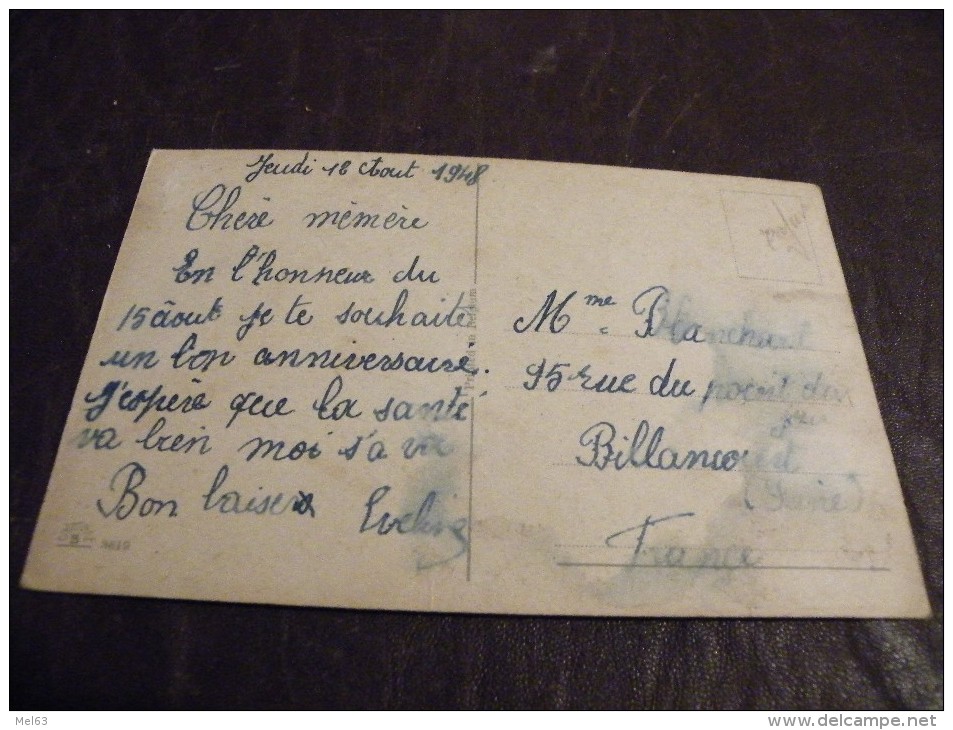 Jeudi 12 Aout 1948
Chère mémère
En l'honneur du
15 août je te souhaite
un bon anniversaire.
J'espère que la santé
va bien moi s'a va
Bon baiser
Eveline
Printed in Belgium
3619
Mme Blanchard
95 rue du point du
jour
Billancourt
(Seine)
France
Mel63
www.delcampe.net